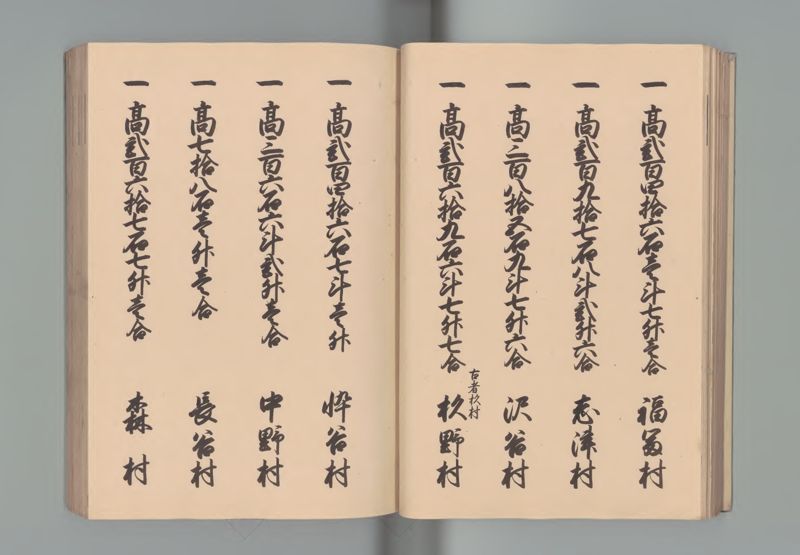 一 高弐百四拾六石壱斗七升壱合 福富村
一 高弐百九拾七石八斗弐升六合 志津村
一 高三百八拾五石九斗七升六合 沢谷村
一 高弐百六拾九石六斗七升七合 杦野村
古者杦村
一 高弐百四拾六石七斗壱升 忰谷村
一 高三百六石六斗弐升壱合 中野村
一 高七拾八石壱升壱合 長谷村
一 高弐百六拾七石七升壱合 森村